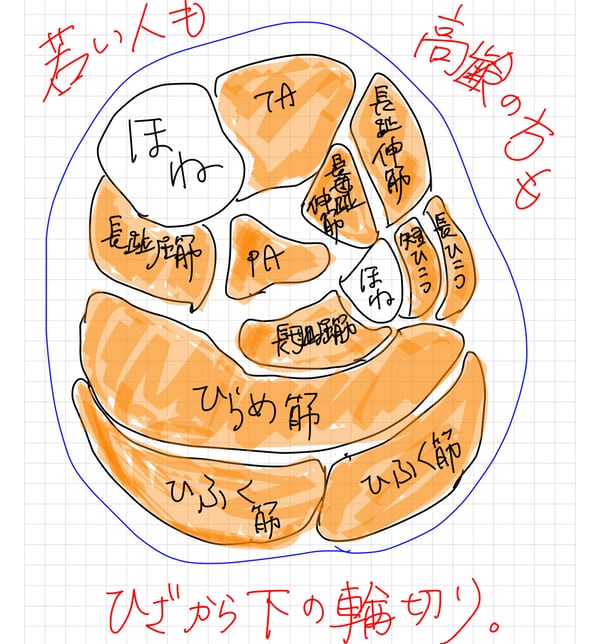 若い人も
高齢の方も
ほね
TA
長趾伸筋
長母趾伸筋
長趾屈筋
PA
ほね
短ひこつ
長ひこつ
長母趾屈筋
ひらめ筋
ひふく筋
ひふく筋
ひざから下の輪切り。